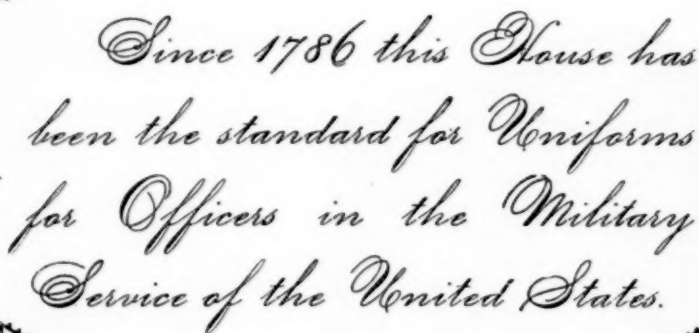 Since 1786 this House has
been the standard for Uniforms
for Officers in the Military
Service of the United States.